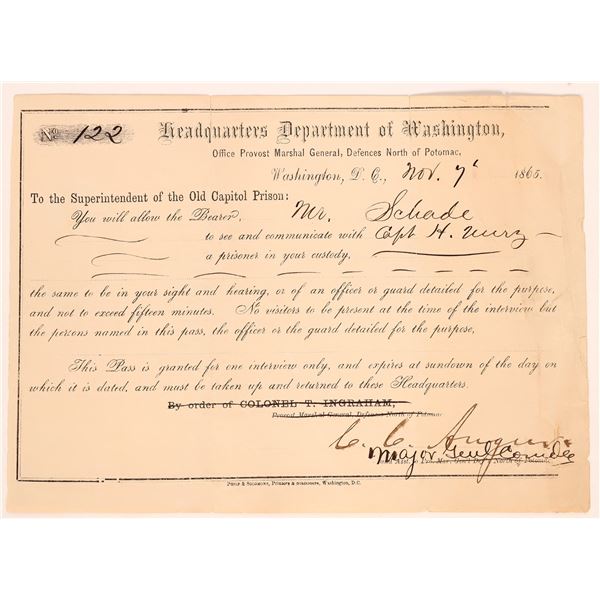 No 122
Headquarters Department of Washington,
Office Provost Marshal General, Defences North of Potomac,
Washington, D. C., Nov. 7' 1865.
To the Superintendent of the Old Capitol Prison:
You will allow the Bearer, Mr. Schade
to see and communicate with Capt H.
a prisoner in your custody,
the same to be in your sight and hearing, or of an officer or guard detailed for the purpose,
and not to exceed fifteen minutes. No visitors to be present at the time of the interview but
the persons named in this pass, the officer or the guard detailed for the purpose,
This Pass is granted for one interview only, and expires at sundown of the day on
which it is dated, and must be taken up and returned to these Headquarters.
By order of COLONEL T. INGRAHAM,
Provost Marshal General, Defences North of Potomac
C. C.
Major Genl Comdg
North of Potomac.
PHILP & SOLOMONS, Washington, D.C.